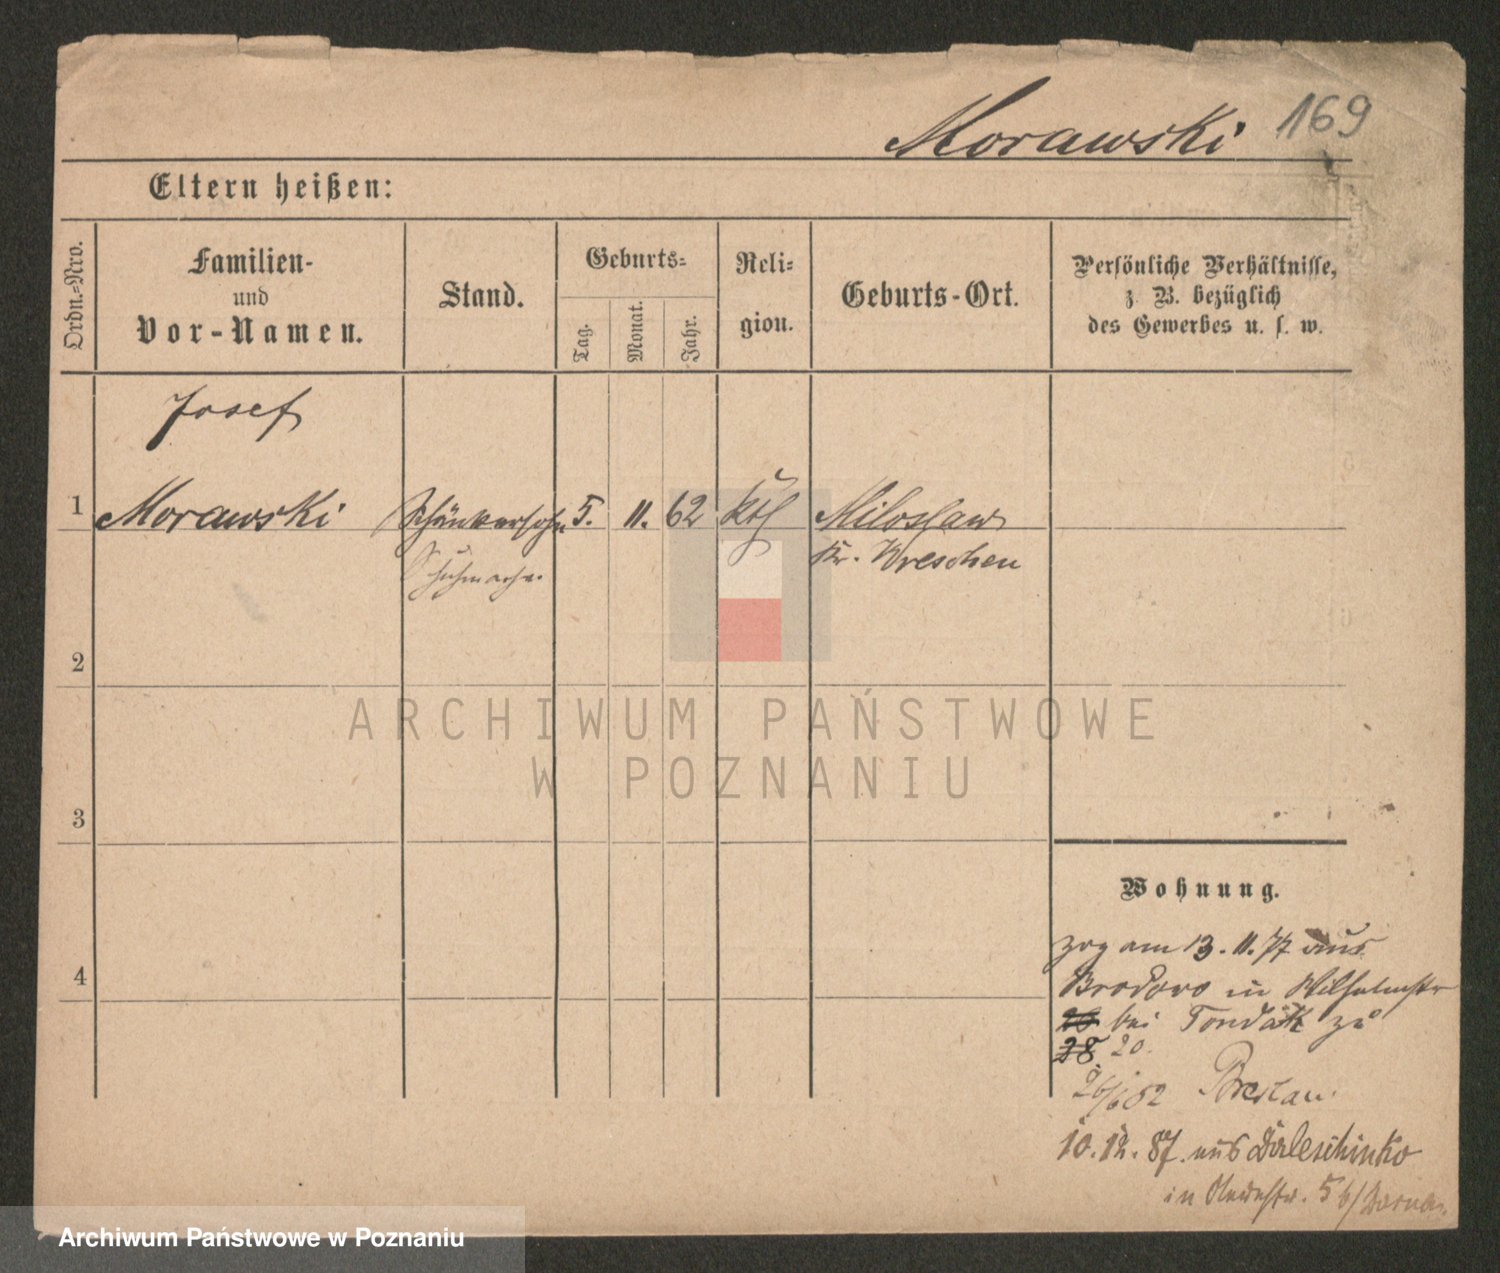 Morawski 169
Eltern heißen:
Ordn.-Nro.
Familien-
und
Vor-Namen.
Stand.
Geburts-
Tag.
Monat.
Jahr.
Reli-
gion.
Geburts-Ort.
Persönliche Verhältnisse,
z. B. bezüglich
des Gewerbes u. s. w.
Josef
1 Morawski Schänkersohn 5. 11. 62 kth Miloslaw
Kr. Wreschen
2
3
4
ARCHIWUM PAŃSTWOWE
W POZNANIU
Wohnung.
zog am 13. 11. 77 aus
in Wilhelmstr
20 bei zu
28. 20.
26/6 82 Breslau.
10. 12. 87. aus Daleschinko
in 5 b/
Archiwum Państwowe w Poznaniu